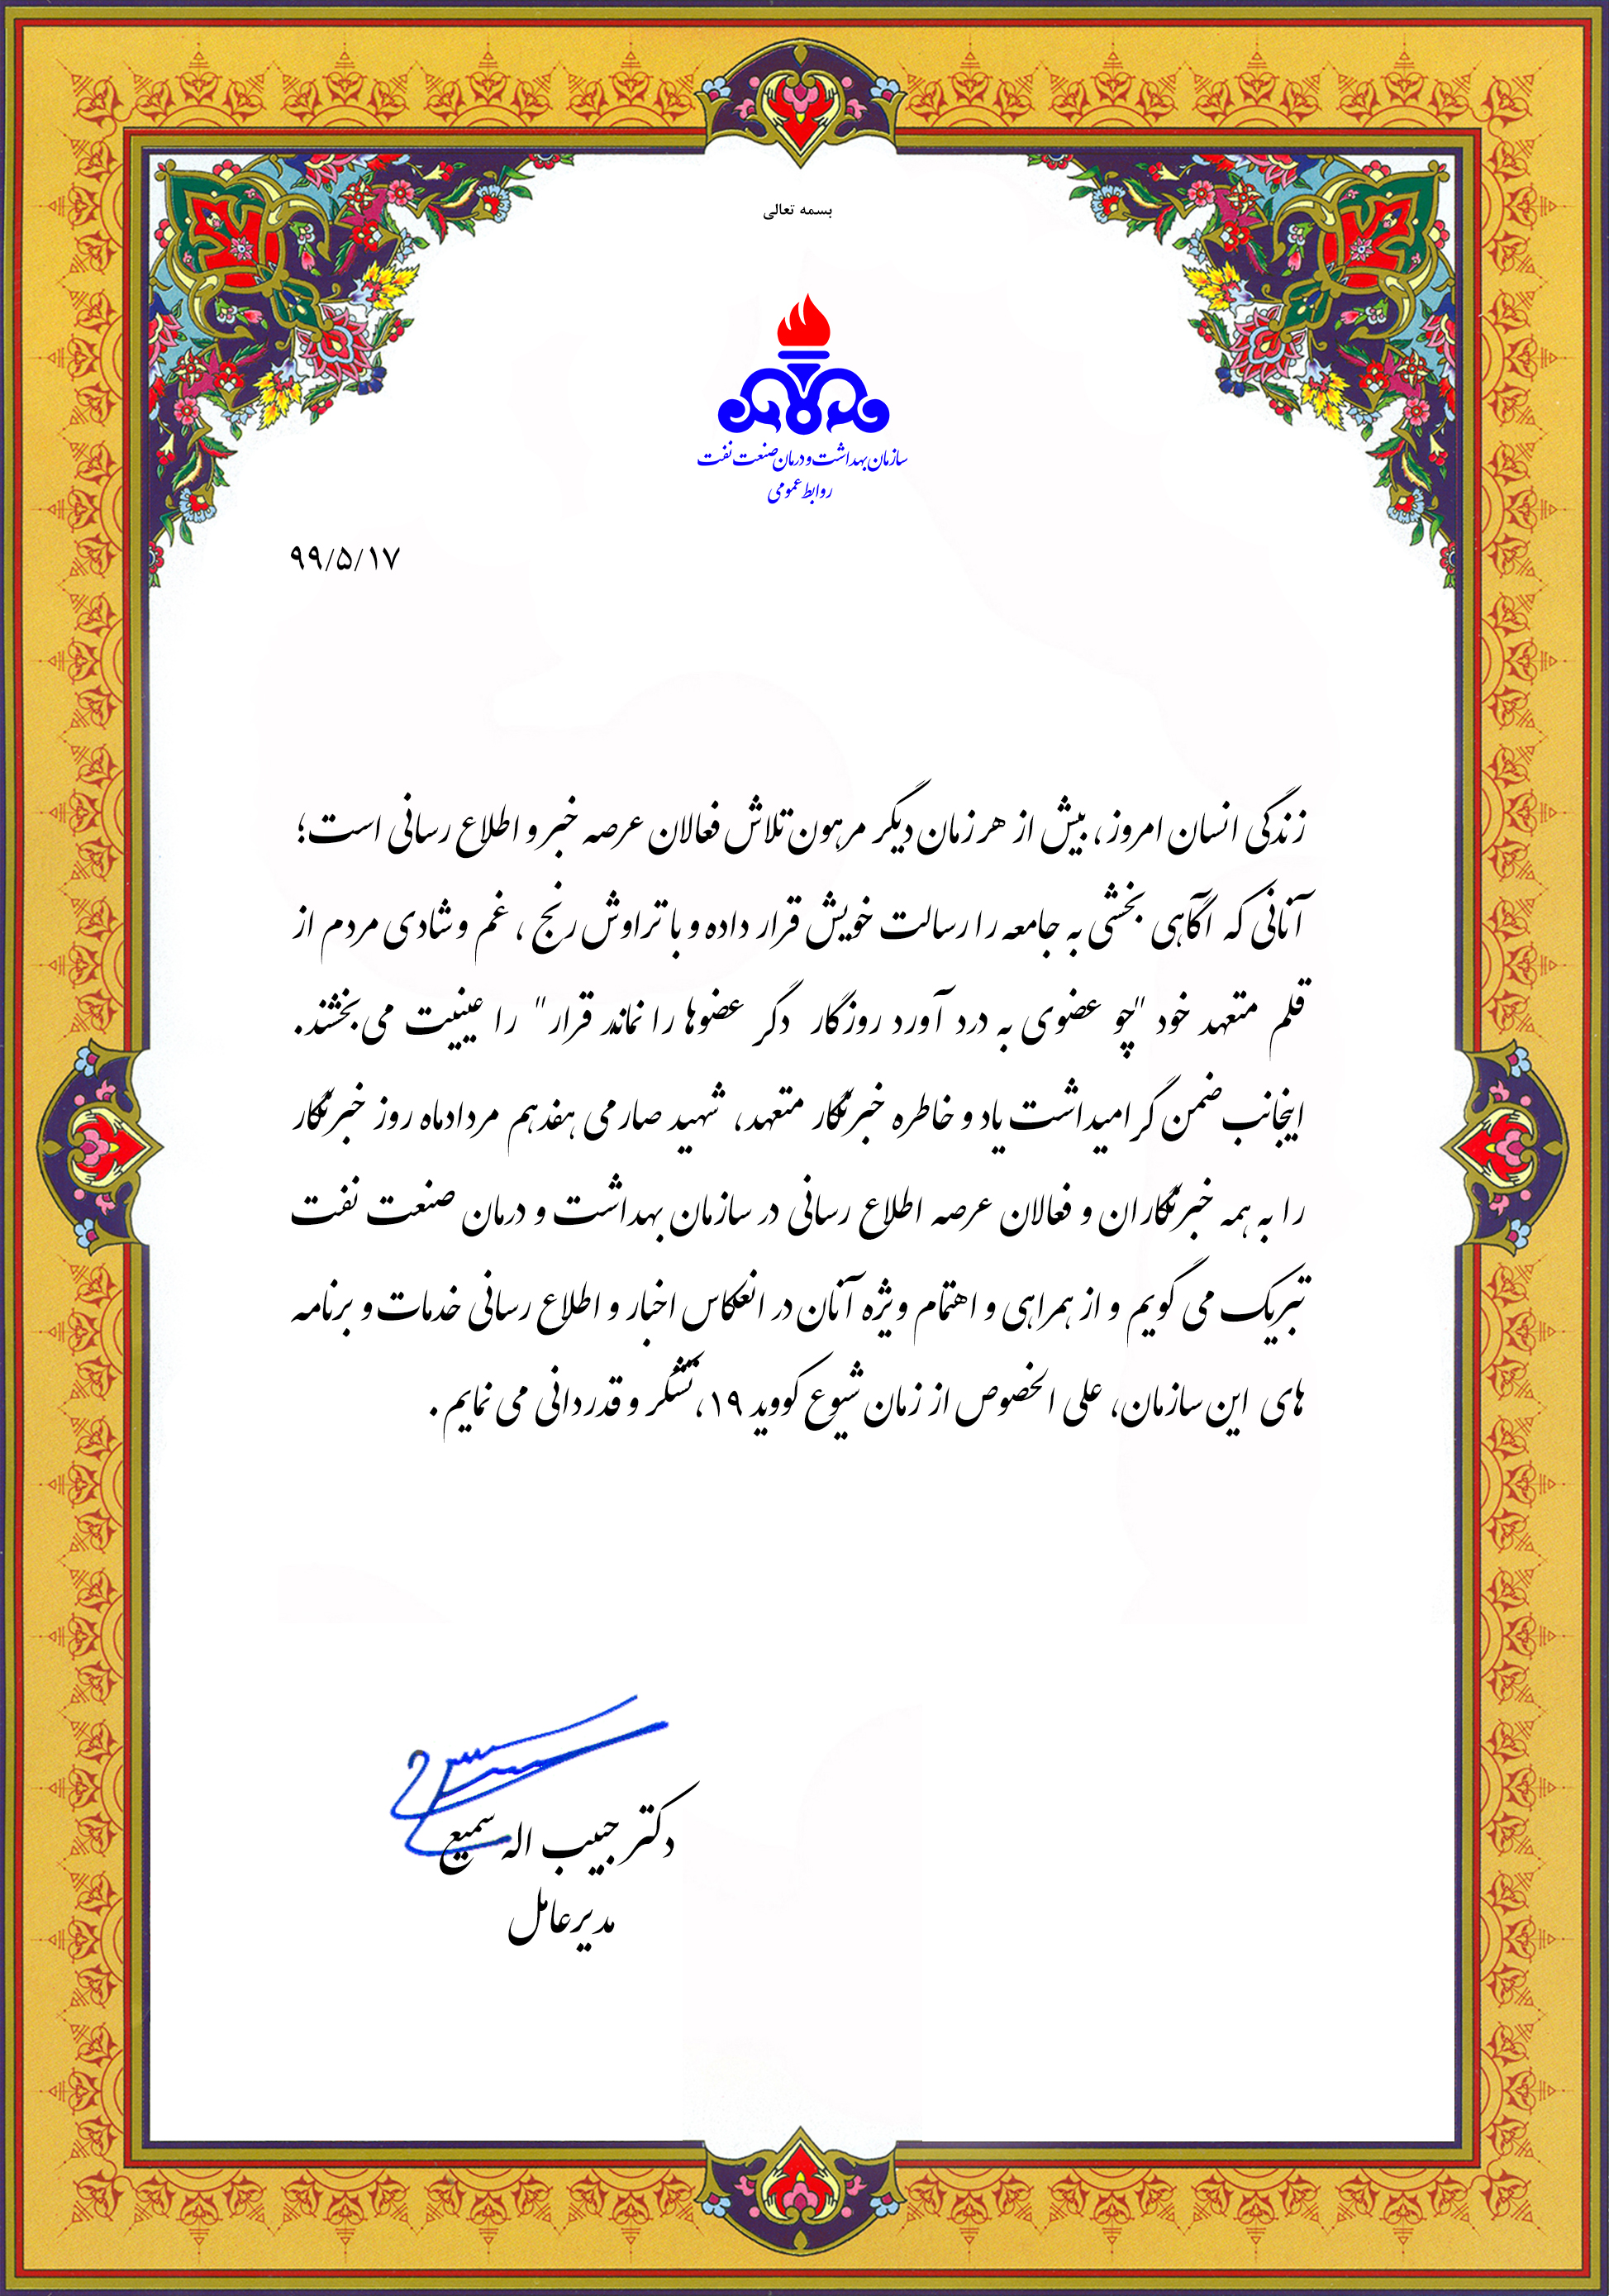 بسمه تعالی
سازمان بهداشت و درمان صنعت نفت
روابط عمومی
۹۹/۵/۱۷
زندگی انسان امروز، بیش از هر زمان دیگر مرهون تلاش فعالان عرصه خبر و اطلاع رسانی است؛
آنانی که آگاهی بخشی به جامعه را رسالت خویش قرار داده و با تراوش رنج ، غم و شادی مردم از
قلم متعهد خود "چو عضوی به درد آورد روزگار دگر عضوها را نماند قرار" را عینیت می بخشند.
اینجانب ضمن گرامیداشت یاد و خاطره خبرنگار متعهد، شهید صارمی هفدهم مردادماه روز خبرنگار
را به همه خبرنگاران و فعالان عرصه اطلاع رسانی در سازمان بهداشت و درمان صنعت نفت
تبریک می گویم و از همراهی و اهتمام ویژه آنان در انعکاس اخبار و اطلاع رسانی خدمات و برنامه
های این سازمان، علی الخصوص از زمان شیوع کووید ۱۹، تشکر و قدردانی می نمایم.
دکتر حبیب اله سمیع
مدیرعامل